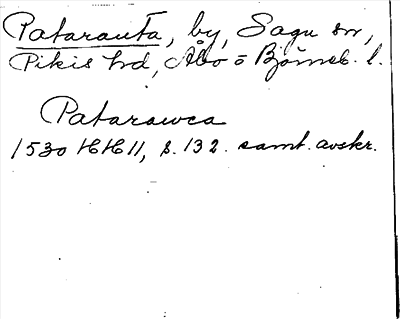 Patarauta, by, Sagu sn,
Pikis hd, Åbo o Björneb. l.
Patarawca
1530 HH II, s. 132. samt. avskr.